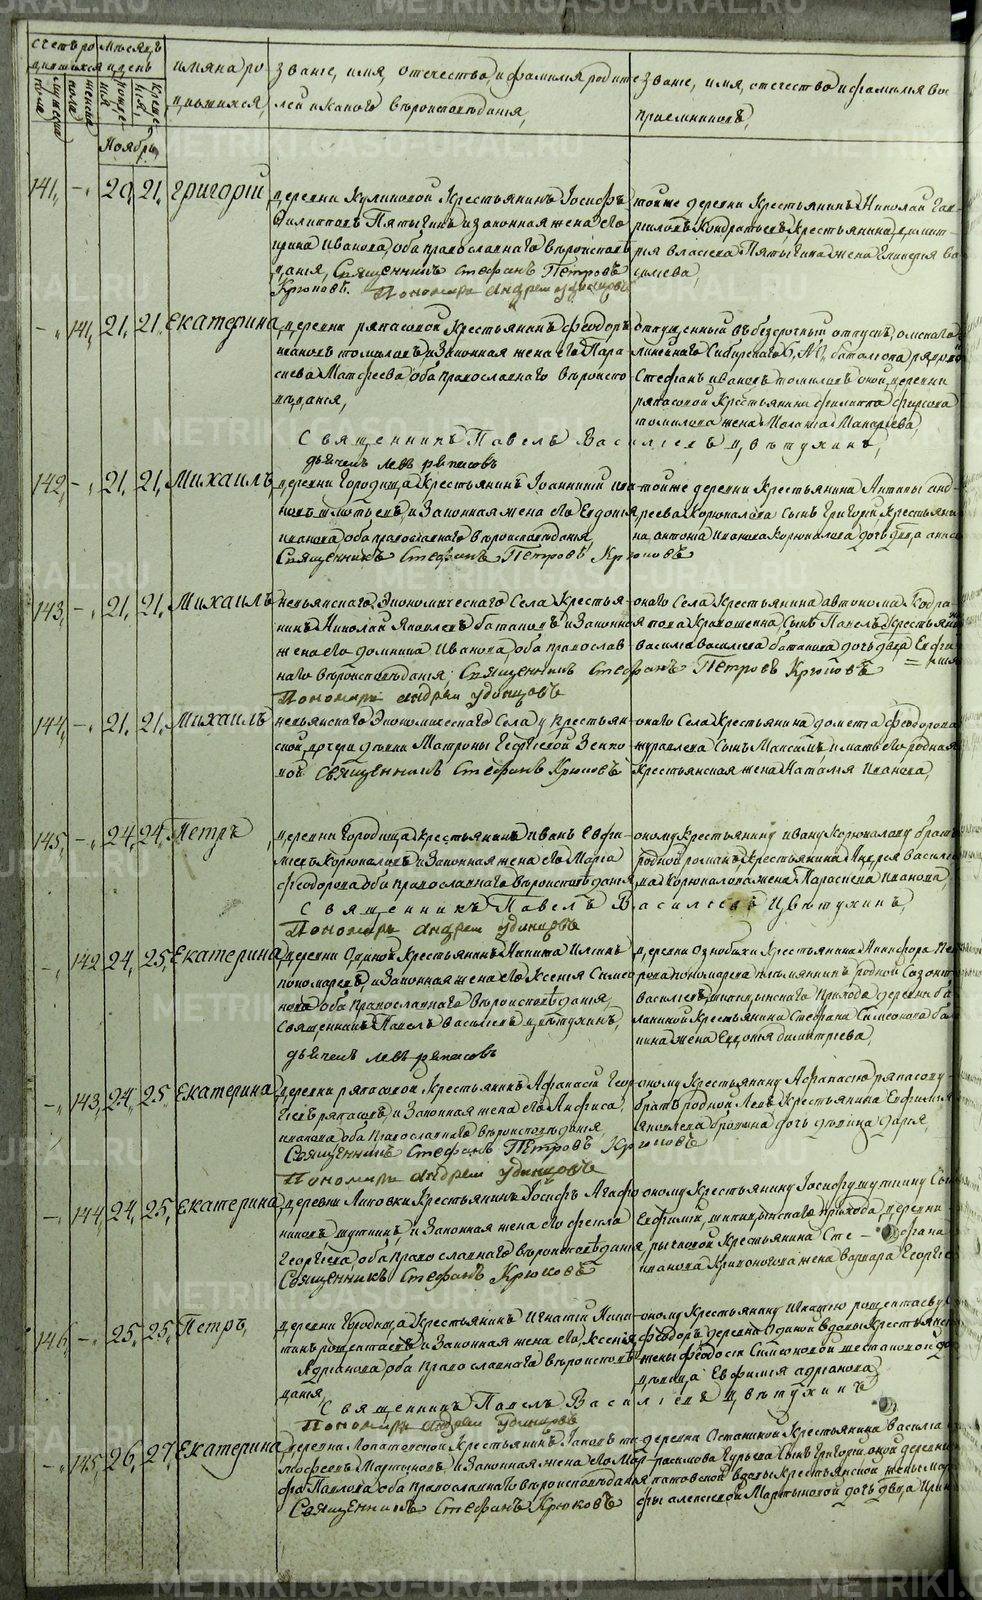 METRIKI.GASO-URAL.RU
Счетъ родившихся
Мѣсяцъ и день
имяна родившихся,
Званіе, имя, отечество, и фамилія родителей и какого вѣроисповѣданія,
Званіе, имя, отечество и фамилія воспріемниковъ,
мужеска пола
женска пола
рожденія
крещенія
Ноябрь
141, —, 20, 21, Григорій
деревни Куликовой Крестьянинъ Іосифъ
Филипповъ Пятыгинъ и законная жена его
Ирина Иванова, оба православнаго вѣроисповѣ
данія, Священникъ Стефанъ Петровъ
Крюковъ. Пономарь Андрей Удинцовъ
тойже деревни Крестьянинъ Николай Гав-
риловъ Кондратьевъ, Крестьянина Димит-
рія Власьева Пятыгина жена Гликерія Ва
сильева,
—, 141, 21, 21, Екатерина
деревни ряпасовой Крестьянинъ Феодоръ
Ивановъ Томиловъ, и Законная жена его Пара
скева Матфеева оба православнаго вѣроиспо
вѣданія,
отпущенный въ безсрочный отпускъ, омскаго
линейнаго Сибирскаго баталіона рядовой
Стефанъ Ивановъ Томиловъ оной деревни
ряпасовой Крестьянина Филиппа Фирсова
Томилова жена Пелагія Макарьева,
Священникъ Павелъ Василіевъ Цвѣтухинъ,
дьячекъ левъ ряпасовъ
142, —, 21, 21, Михаилъ
деревни Городища Крестьянинъ Іоанникій Ива
новъ и Законная жена его Евдокія
Иванова, оба православнаго вѣроисповѣданія,
Священникъ Стефанъ Петровъ Крюковъ
тойже деревни Крестьянина Антипы Анд-
реева Корюкалова сынъ Григорій, Крестьяни
на Антона Иванова Корюкалова дочь дѣвица Анна
143, —, 21, 21, Михаилъ
невьянскаго Экономическаго Села Крестья-
нинъ Николай Яковлевъ Батаковъ и Законная
жена его Домника Иванова, оба православ
наго вѣроисповѣданія; Священникъ Стефанъ Петровъ Крюковъ
Пономарь Андрей Удинцовъ
онаго Села Крестьянина Автонома Кодра-
това Крапошина Сынъ Павелъ, Крестьяни
Василья Васильева Батакова дочь дѣвица Евфи
144, —, 21, 21, Михаилъ
невьянскаго Экономическаго Села у Крестьян
ской дочери дѣвки Матроны Георгіевой Зенко
вой Священникъ Стефанъ Крюковъ
онаго Села Крестьянина Домета Феодорова
Журавлева Сынъ Максимъ и мать его родная
Крестьянская жена Наталья Иванова,
145, —, 24, 24, Петръ,
деревни Городища Крестьянинъ Иванъ Евфи-
міевъ Корюкаловъ и Законная жена его Марія
Феодорова оба православнаго вѣроисповѣданія
Священникъ Павелъ Василіевъ Цвѣтухинъ,
Пономарь Андрей Удинцовъ
оному Крестьянину Ивану Корюкалову братъ
родной романъ, Крестьянина Андрея Василье
ва Корюкалова жена Параскева Иванова,
—, 142, 24, 25, Екатерина,
деревни Одиной Крестьянинъ Никита Ильинъ
Пономаревъ, и Законная жена его Ксенія Симео
нова оба Православнаго вѣроисповѣданія,
Священникъ Павелъ Василіевъ Цвѣтухинъ,
дьячекъ левъ ряпасовъ
деревни Ознобихи Крестьянина Никифора Пет
рова Пономарева племянникъ родной Созонтъ
Васильевъ, Шипицынскаго Прихода деревни Ба
лакиной Крестьянина Стефана Симеонова Бала
кина жена Евдокія Димитріева,
—, 143, 24, 25, Екатерина
деревни ряпасовой, Крестьянинъ Афанасій Геор
гіевъ ряпасовъ, и Законная жена его Анфиса,
Иванова, оба Православнаго вѣроисповѣданія
Священникъ Стефанъ Петровъ Крюковъ
Пономарь Андрей Удинцовъ
оному Крестьянину Афанасію ряпасову
братъ родной Левъ, Крестьянина Евфимія
Яковлева дочь дѣвица Дарья,
—, 144, 24, 25, Екатерина,
деревни Липовки Крестьянинъ Іосифъ Агафо
никовъ Шуткинъ, и Законная жена его Фекла
Георгіева, оба Православнаго вѣроисповѣданія,
Священникъ Стефанъ Крюковъ
оному Крестьянину Іосифу Шуткину Сынъ
Евфимій, Шипицынскаго Прихода, деревни
рычковой Крестьянина Сте — фана
Иванова Кривоногова жена Варвара Георгіева
146, —, 25, 25, Петръ,
деревни Городища, Крестьянинъ Игнатій Ники
тинъ рощектаевъ и Законная жена его, Ксенія
Адріанова, оба Православнаго вѣроисповѣ
данія,
Священникъ Павелъ Василіевъ Цвѣтухинъ
Пономарь Андрей Удинцовъ
оному Крестьянину Игнатію рощектаеву
Феодоръ, деревни Одиной вдовы Крестьянской
жены Феодосіи Симеоновой Шестаковой до
дѣвица Евфимія Адріанова
—, 145, 26, 27, Екатерина,
деревни Лопатовской Крестьянинъ Іаковъ Ти
мофеевъ Мартыновъ, и Законная жена его Мар
фа Павлова оба православнаго вѣроисповѣданія
Священникъ Стефанъ Крюковъ
деревни Останиной Крестьянина Василья
Гурьева Сынъ Григорій оной деревни
Лопатовской вдовы Крестьянской жены Мар
фы Алексѣевой Мартыновой дочь дѣвица Ирина